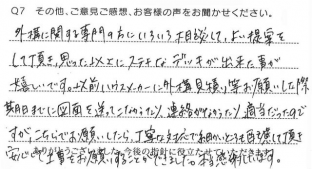 Q7 その他、ご意見ご感想、お客様の声をお聞かせください。
外構に関する専門の方にいろいろ相談して、よい提案を
して頂き、思った以上にステキなデッキが出来た事が
嬉しいです。以前ハウスメーカーに外構見積り等お願いした際
期日までに図面を送ってこなかったり、連絡がなかったり適当だったので
すが、こちらでお願いしたら、丁寧な対応で細かいところも配慮して頂き
安心して工事をお願いすることができました。本当に感謝してます。
ありがとうございました。今後の設計に役立たせていただきます。